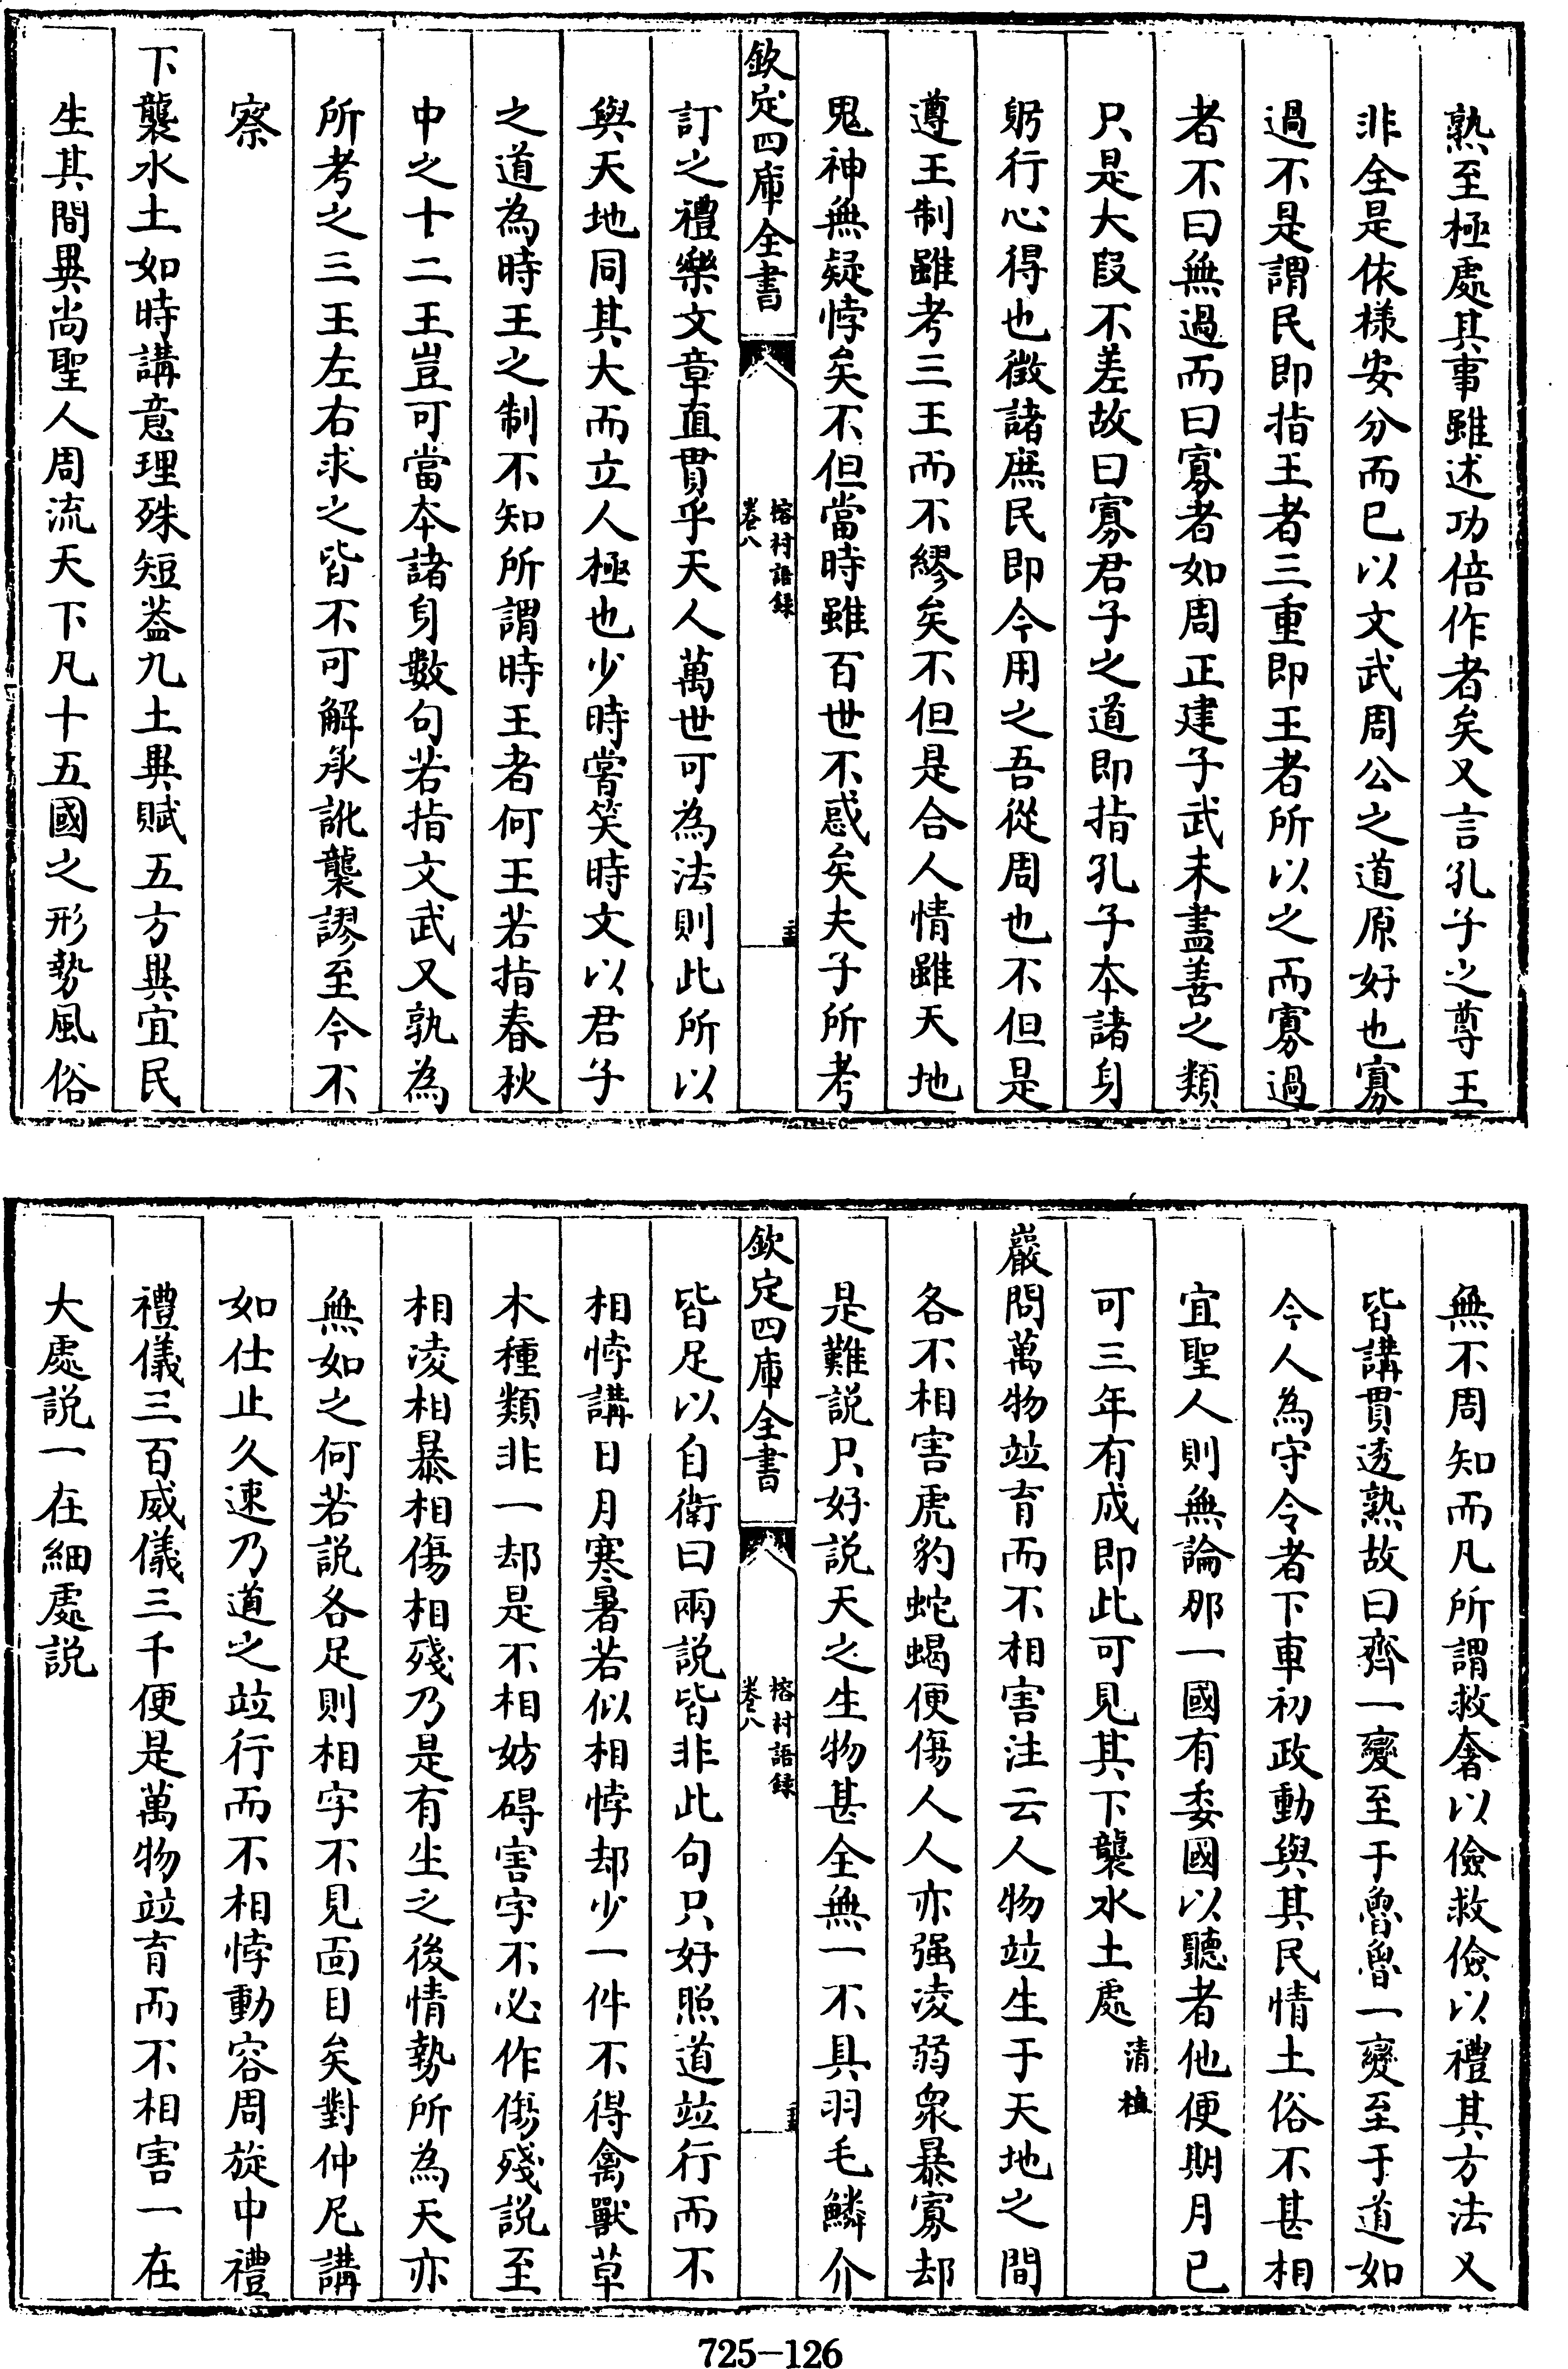 熟至極處其事雖述功倍作者矣又言孔子之尊王
非全是依樣安分而已以文武周公之道原好也寡
過不是謂民即指王者三重即王者所以之而寡過
者不曰無過而曰寡者如周正建子武未盡善之類
只是大段不差故曰寡君子之道即指孔子本諸身
躬行心得也徵諸庶民即今用之吾從周也不但是
遵王制雖考三王而不繆矣不但是合人情雖天地
鬼神無疑悖矣不但當時雖百世不惑矣夫子所考
欽定四庫全書
榕村語録
卷八
訂之禮樂文章直貫乎天人萬世可為法則此所以
與天地同其大而立人極也少時嘗笑時文以君子
之道為時王之制不知所謂時王者何王若指春秋
中之十二王豈可當本諸身數句若指文武又孰為
所考之三王左右求之皆不可解承訛襲謬至今不
察
下襲水土如時講意理殊短葢九土異賦五方異宜民
生其間異尚聖人周流天下凡十五國之形勢風俗
無不周知而凡所謂救奢以儉救儉以禮其方法又
皆講貫透熟故曰齊一變至于魯魯一變至于道如
今人為守令者下車初政動與其民情土俗不甚相
宜聖人則無論那一國有委國以聽者他便期月已
可三年有成即此可見其下襲水土處
清植
巖問萬物竝育而不相害注云人物竝生于天地之間
各不相害虎豹蛇蝎便傷人人亦强凌弱衆暴寡却
是難說只好說天之生物甚全無一不具羽毛鱗介
欽定四庫全書
榕村語録
卷八
皆足以自衛曰兩説皆非此句只好照道竝行而不
相悖講日月寒暑若似相悖却少一件不得禽獸草
木種類非一却是不相妨碍害字不必作傷殘説至
相凌相暴相傷相殘乃是有生之後情勢所為天亦
無如之何若説各足則相字不見面目矣對仲尼講
如仕止久速乃道之竝行而不相悖動容周旋中禮
禮儀三百威儀三千便是萬物竝育而不相害一在
大處説一在細處説
725-126